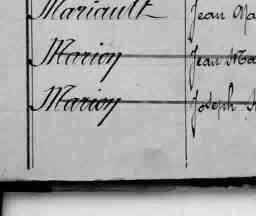 Mariault Jean Ma
Marion Jean Ma
Marion Joseph